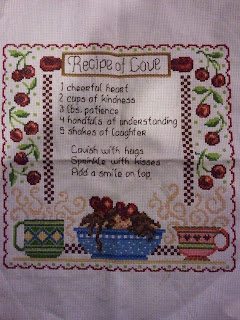 Recipe of Love
1 cheerful heart
2 cups of kindness
3 lbs. patience
4 handfuls of understanding
5 shakes of laughter
Lavish with hugs
Sprinkle with kisses
Add a smile on top